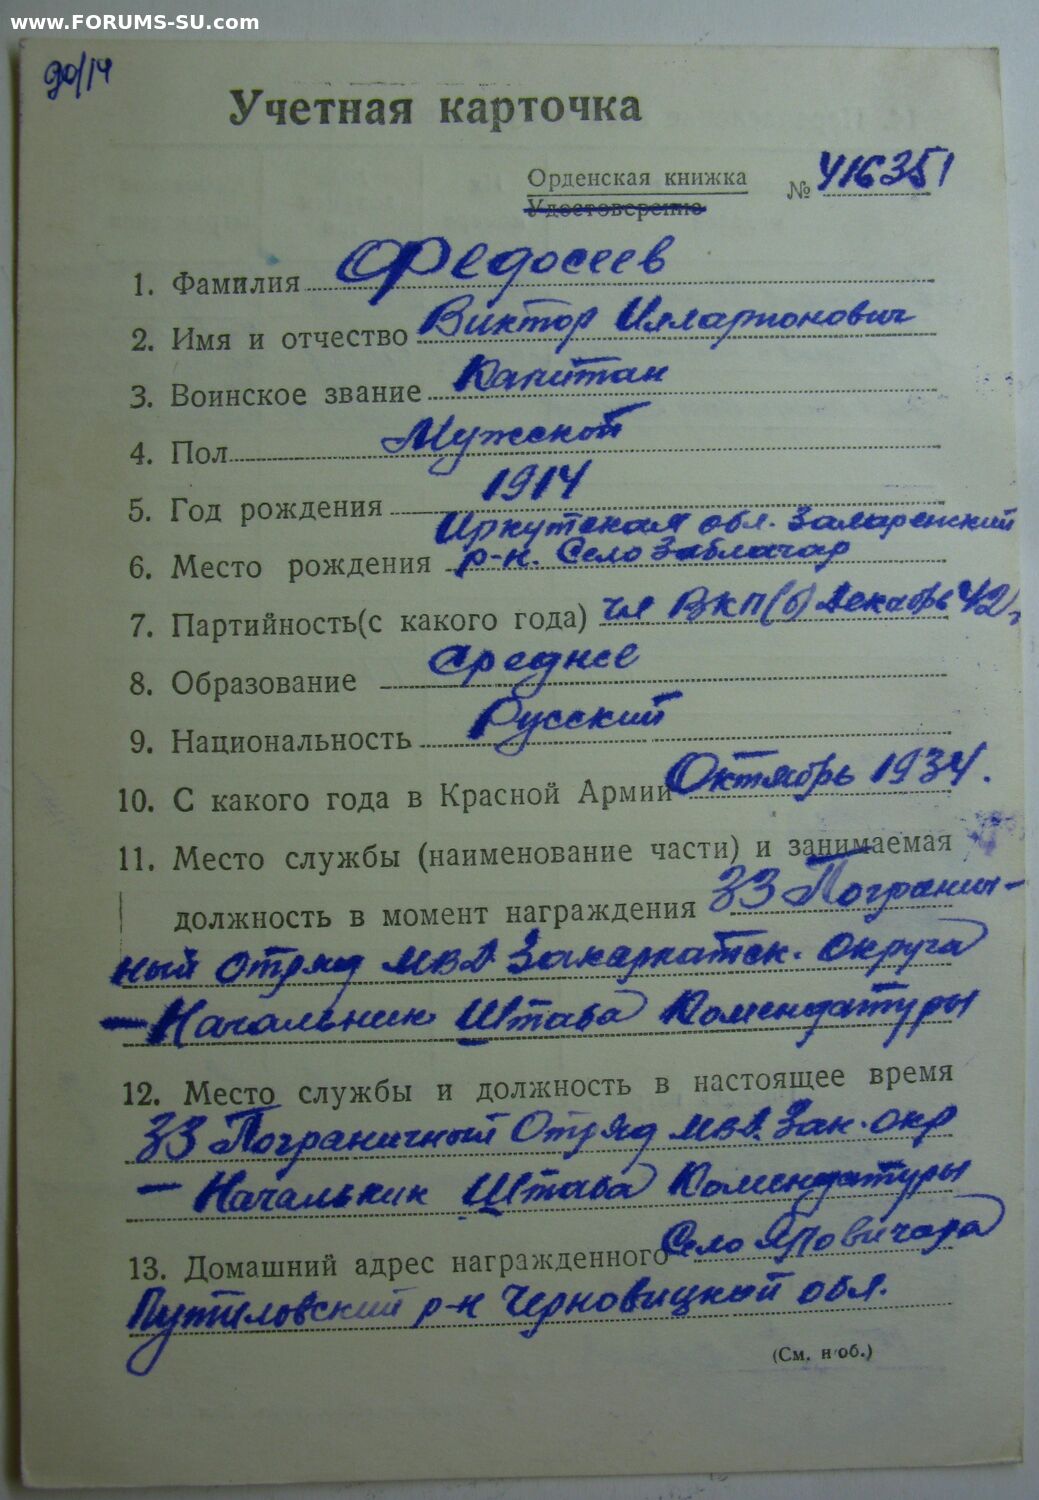 www.FORUMS-SU.com
90/14
Учетная карточка
Орденская книжка № 416351
Удостоверение
1. Фамилия Федосеев
2. Имя и отчество Виктор Илларионович
3. Воинское звание Капитан
4. Пол Мужской
5. Год рождения 1914
Иркутская обл. Заларенский
6. Место рождения р-н. Село
7. Партийность (с какого года) чл ВКП(б) Декабрь 42 г
8. Образование Среднее
9. Национальность Русский
10. С какого года в Красной Армии Октябрь 1934.
11. Место службы (наименование части) и занимаемая
должность в момент награждения 33 Погранич-
ный Отряд МВД Закарпатск. округа
— Начальник Штаба Комендатуры
12. Место службы и должность в настоящее время
33 Пограничный Отряд МВД. Зак. окр
— Начальник Штаба Комендатуры
13. Домашний адрес награжденного Село Яповичара
Путиловский р-н Черновицкой обл.
(См. н об.)